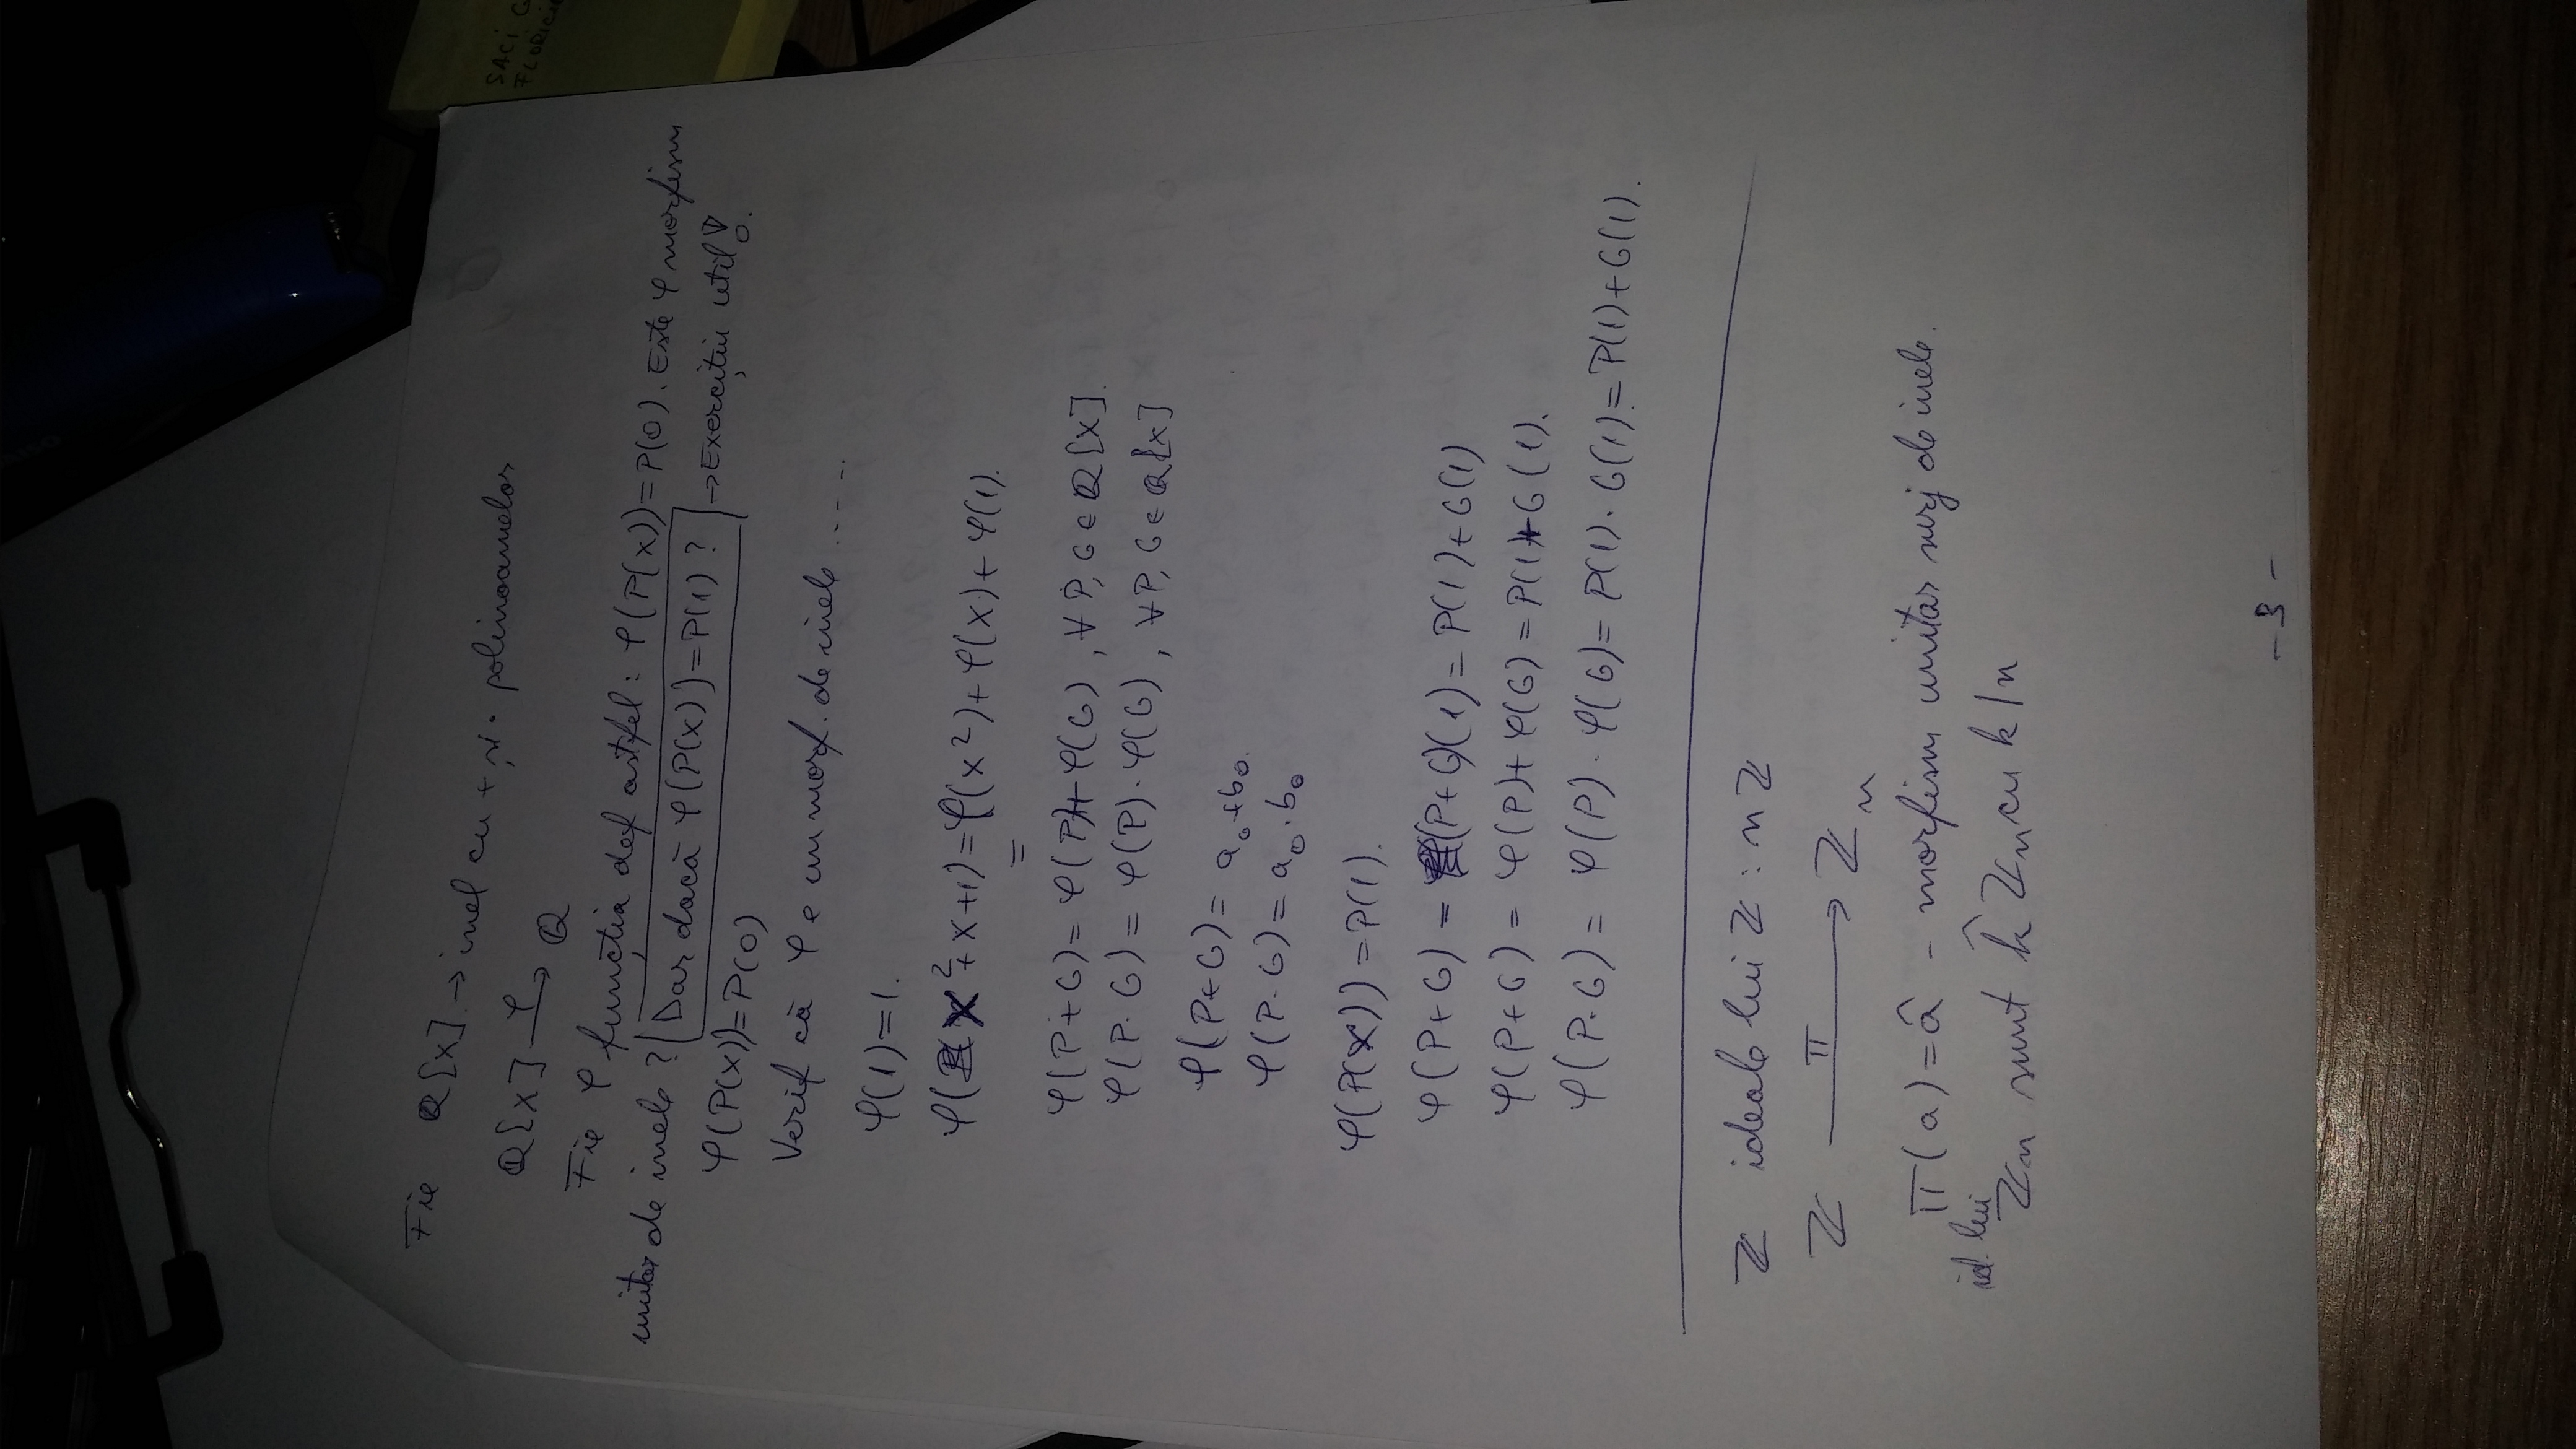 Fie Q[X] → inel cu + și · polinoamelor
Q[X] —φ→ Q
Fie φ funcția def astfel: φ(P(x))=P(0). Este φ morfism
unitar de inele? Dar dacă φ(P(x))=P(1)? → Exercițiu util!
φ(P(x))=P(0)
Verif că φ e un morf. de inele .....
φ(1)=1.
φ(X²+X+1)=φ(x²)+φ(x)+φ(1).
=
φ(P+G)= φ(P)+φ(G), ∀ P, G ∈ Q[X].
φ(P·G)= φ(P)·φ(G), ∀ P, G ∈ Q[X]
φ(P+G)= a₀+b₀.
φ(P·G)= a₀·b₀
φ(P(X))=P(1).
φ(P+G) = (P+G)(1)= P(1)+G(1)
φ(P+G) = φ(P)+φ(G)=P(1)+G(1).
φ(P·G) = φ(P)·φ(G)= P(1)·G(1)=P(1)+G(1).
ℤ ideale lui ℤ : nℤ
ℤ —π→ ℤₙ
π(a)=â - morfism unitar surj de inele.
id. lui
ℤₙ sunt k̂ ℤₙ cu k|n
-3-
SACI